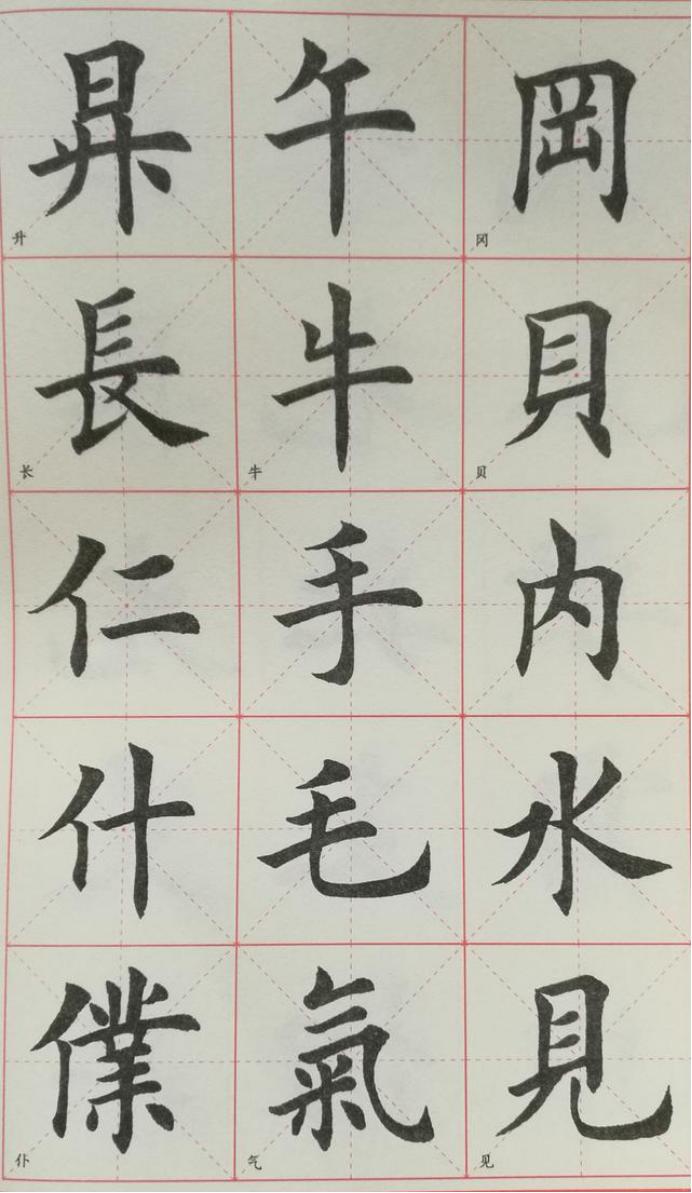 岡
冈
貝
贝
内
水
見
见
午
牛
牛
手
毛
氣
气
昇
升
長
长
仁
什
僕
仆